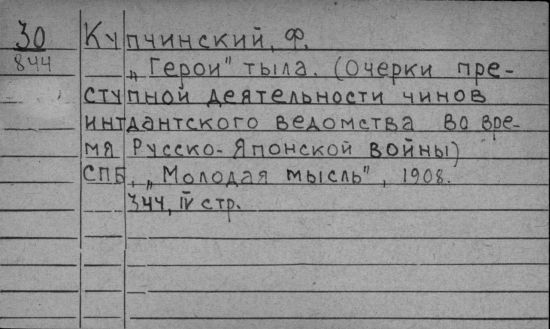 30 Купчинский, Ф.
844 „Герои" тыла. (Очерки пре-
ступной деятельности чинов
интдантского ведомства во вре-
мя Русско-Японской войны)
СПБ, „Молодая мысль", 1908.
344, IV стр.